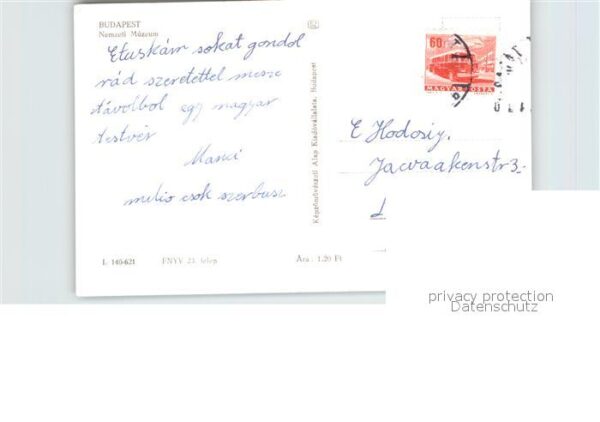 BUDAPEST
Nemzeti Múzeum
Etuskám sokat gondol
rád szeretettel messze
távolból egy magyar
testvér
Manci
milio csók szerbusz
L 140-621 FNYV 23. telep Ára: 1.20 Ft
Képzőművészeti Alap Kiadóvállalata, Budapest
60 f
MAGYAR POSTA
E Hodosiy.
privacy protection
Datenschutz